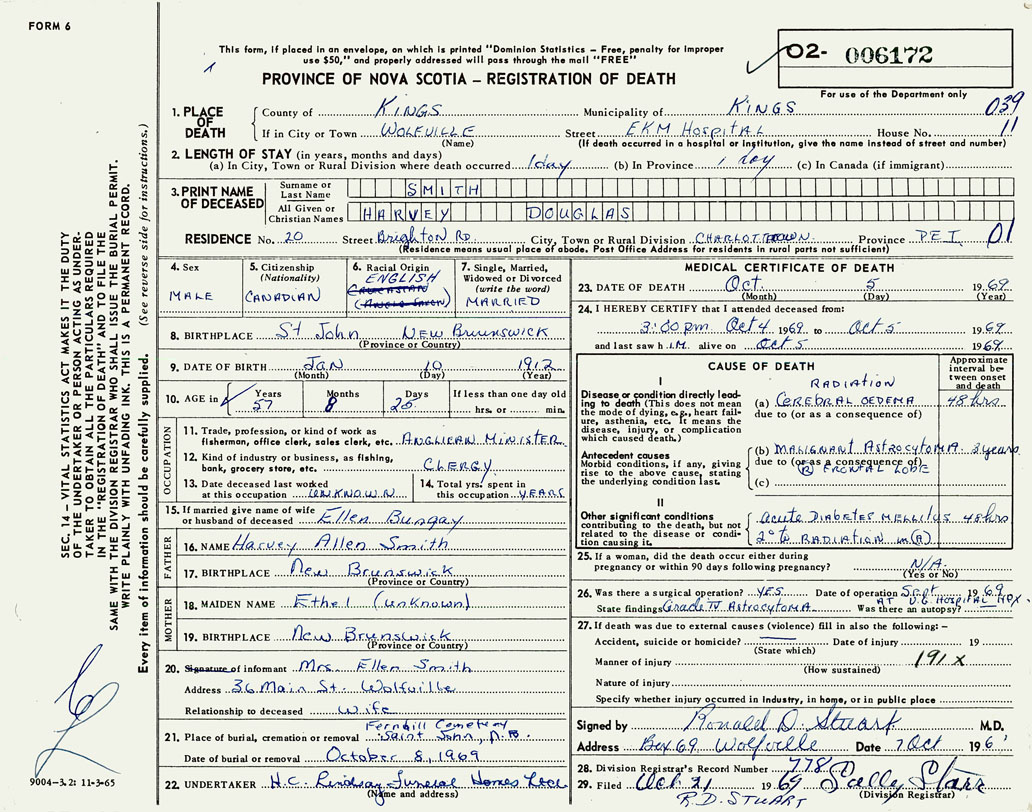 FORM 6
This form, if placed in an envelope, on which is printed "Dominion Statistics – Free, penalty for improper
use $50," and properly addressed will pass through the mail "FREE"
PROVINCE OF NOVA SCOTIA – REGISTRATION OF DEATH
02- 006172
For use of the Department only
SEC. 14 – VITAL STATISTICS ACT MAKES IT THE DUTY
OF THE UNDERTAKER OR PERSON ACTING AS UNDER-
TAKER TO OBTAIN ALL THE PARTICULARS REQUIRED
IN THE "REGISTRATION OF DEATH" AND TO FILE THE
SAME WITH THE DIVISION REGISTRAR WHO SHALL ISSUE THE BURIAL PERMIT.
WRITE PLAINLY WITH UNFADING INK. THIS IS A PERMANENT RECORD.
Every item of information should be carefully supplied. (See reverse side for instructions.)
1. PLACE OF DEATH
County of KINGS Municipality of KINGS 039
If in City or Town WOLFVILLE Street EKM Hospital House No. 11
(Name) (If death occurred in a hospital or institution, give the name instead of street and number)
2. LENGTH OF STAY (in years, months and days)
(a) In City, Town or Rural Division where death occurred 1 day (b) In Province 1 day (c) In Canada (if immigrant)
3. PRINT NAME OF DECEASED
Surname or Last Name SMITH
All Given or Christian Names HARVEY DOUGLAS
RESIDENCE No. 20 Street Brighton RD. City, Town or Rural Division CHARLOTTETOWN Province P.E.I. 01
(Residence means usual place of abode. Post Office Address for residents in rural parts not sufficient)
4. Sex
MALE
5. Citizenship (Nationality)
CANADIAN
6. Racial Origin
ENGLISH
CAUCASIAN
(ANGLO SAXON)
7. Single, Married, Widowed or Divorced (write the word)
MARRIED
8. BIRTHPLACE St John NEW BRUNSWICK
(Province or Country)
9. DATE OF BIRTH JAN 10 1912
(Month) (Day) (Year)
10. AGE in Years 57 Months 8 Days 25 If less than one day old hrs. or min.
OCCUPATION
11. Trade, profession, or kind of work as
fisherman, office clerk, sales clerk, etc. ANGLICAN MINISTER
12. Kind of industry or business, as fishing,
bank, grocery store, etc. CLERGY
13. Date deceased last worked
at this occupation UNKNOWN
14. Total yrs. spent in
this occupation YEARS
15. If married give name of wife
or husband of deceased Ellen Bungay
FATHER
16. NAME Harvey Allen Smith
17. BIRTHPLACE New Brunswick
(Province or Country)
MOTHER
18. MAIDEN NAME Ethel (unknown)
19. BIRTHPLACE New Brunswick
(Province or Country)
20. Signature of informant Mrs. Ellen Smith
Address 36 Main St. Wolfville
Relationship to deceased wife
Fernhill Cemetery
21. Place of burial, cremation or removal Saint John, N.B.
Date of burial or removal October 8, 1969
22. UNDERTAKER H.C. Lindsay Funeral Homes
(Name and address)
MEDICAL CERTIFICATE OF DEATH
23. DATE OF DEATH Oct. 5 1969
(Month) (Day) (Year)
24. I HEREBY CERTIFY that I attended deceased from:
3:00 pm Oct 4 1969 to Oct 5 1969
and last saw h IM alive on Oct 5 1969
CAUSE OF DEATH
Approximate interval between onset and death
I
Disease or condition directly lead-
ing to death (This does not mean
the mode of dying, e.g., heart fail-
ure, asthenia, etc. It means the
disease, injury, or complication
which caused death.)
RADIATION
(a) CEREBRAL OEDEMA 48 hrs
due to (or as a consequence of)
Antecedent causes
Morbid conditions, if any, giving
rise to the above cause, stating
the underlying condition last.
(b) MALIGNANT Astrocytoma 3 years
due to (or as a consequence of)
(R) FRONTAL LOBE
(c)
II
Other significant conditions
contributing to the death, but not
related to the disease or condi-
tion causing it.
acute DIABETES MELLITUS 48 hrs
2° to RADIATION in (A)
25. If a woman, did the death occur either during
pregnancy or within 90 days following pregnancy? N/A
(Yes or No)
26. Was there a surgical operation? YES Date of operation Sept 1969
AT V.G. HOSPITAL HFX
State findings Grade IV Astrocytoma Was there an autopsy?
27. If death was due to external causes (violence) fill in also the following: –
Accident, suicide or homicide? Date of injury 19
(State which)
Manner of injury 191 X
(How sustained)
Nature of injury
Specify whether injury occurred in industry, in home, or in public place
Signed by Ronald D. Stuart M.D.
Address Box 69 Wolfville Date 7 Oct 196
28. Division Registrar's Record Number 778
29. Filed Oct 21 1969 Sally Starr
(Division Registrar)
R.D. STUART
9004-3.2: 11-3-65